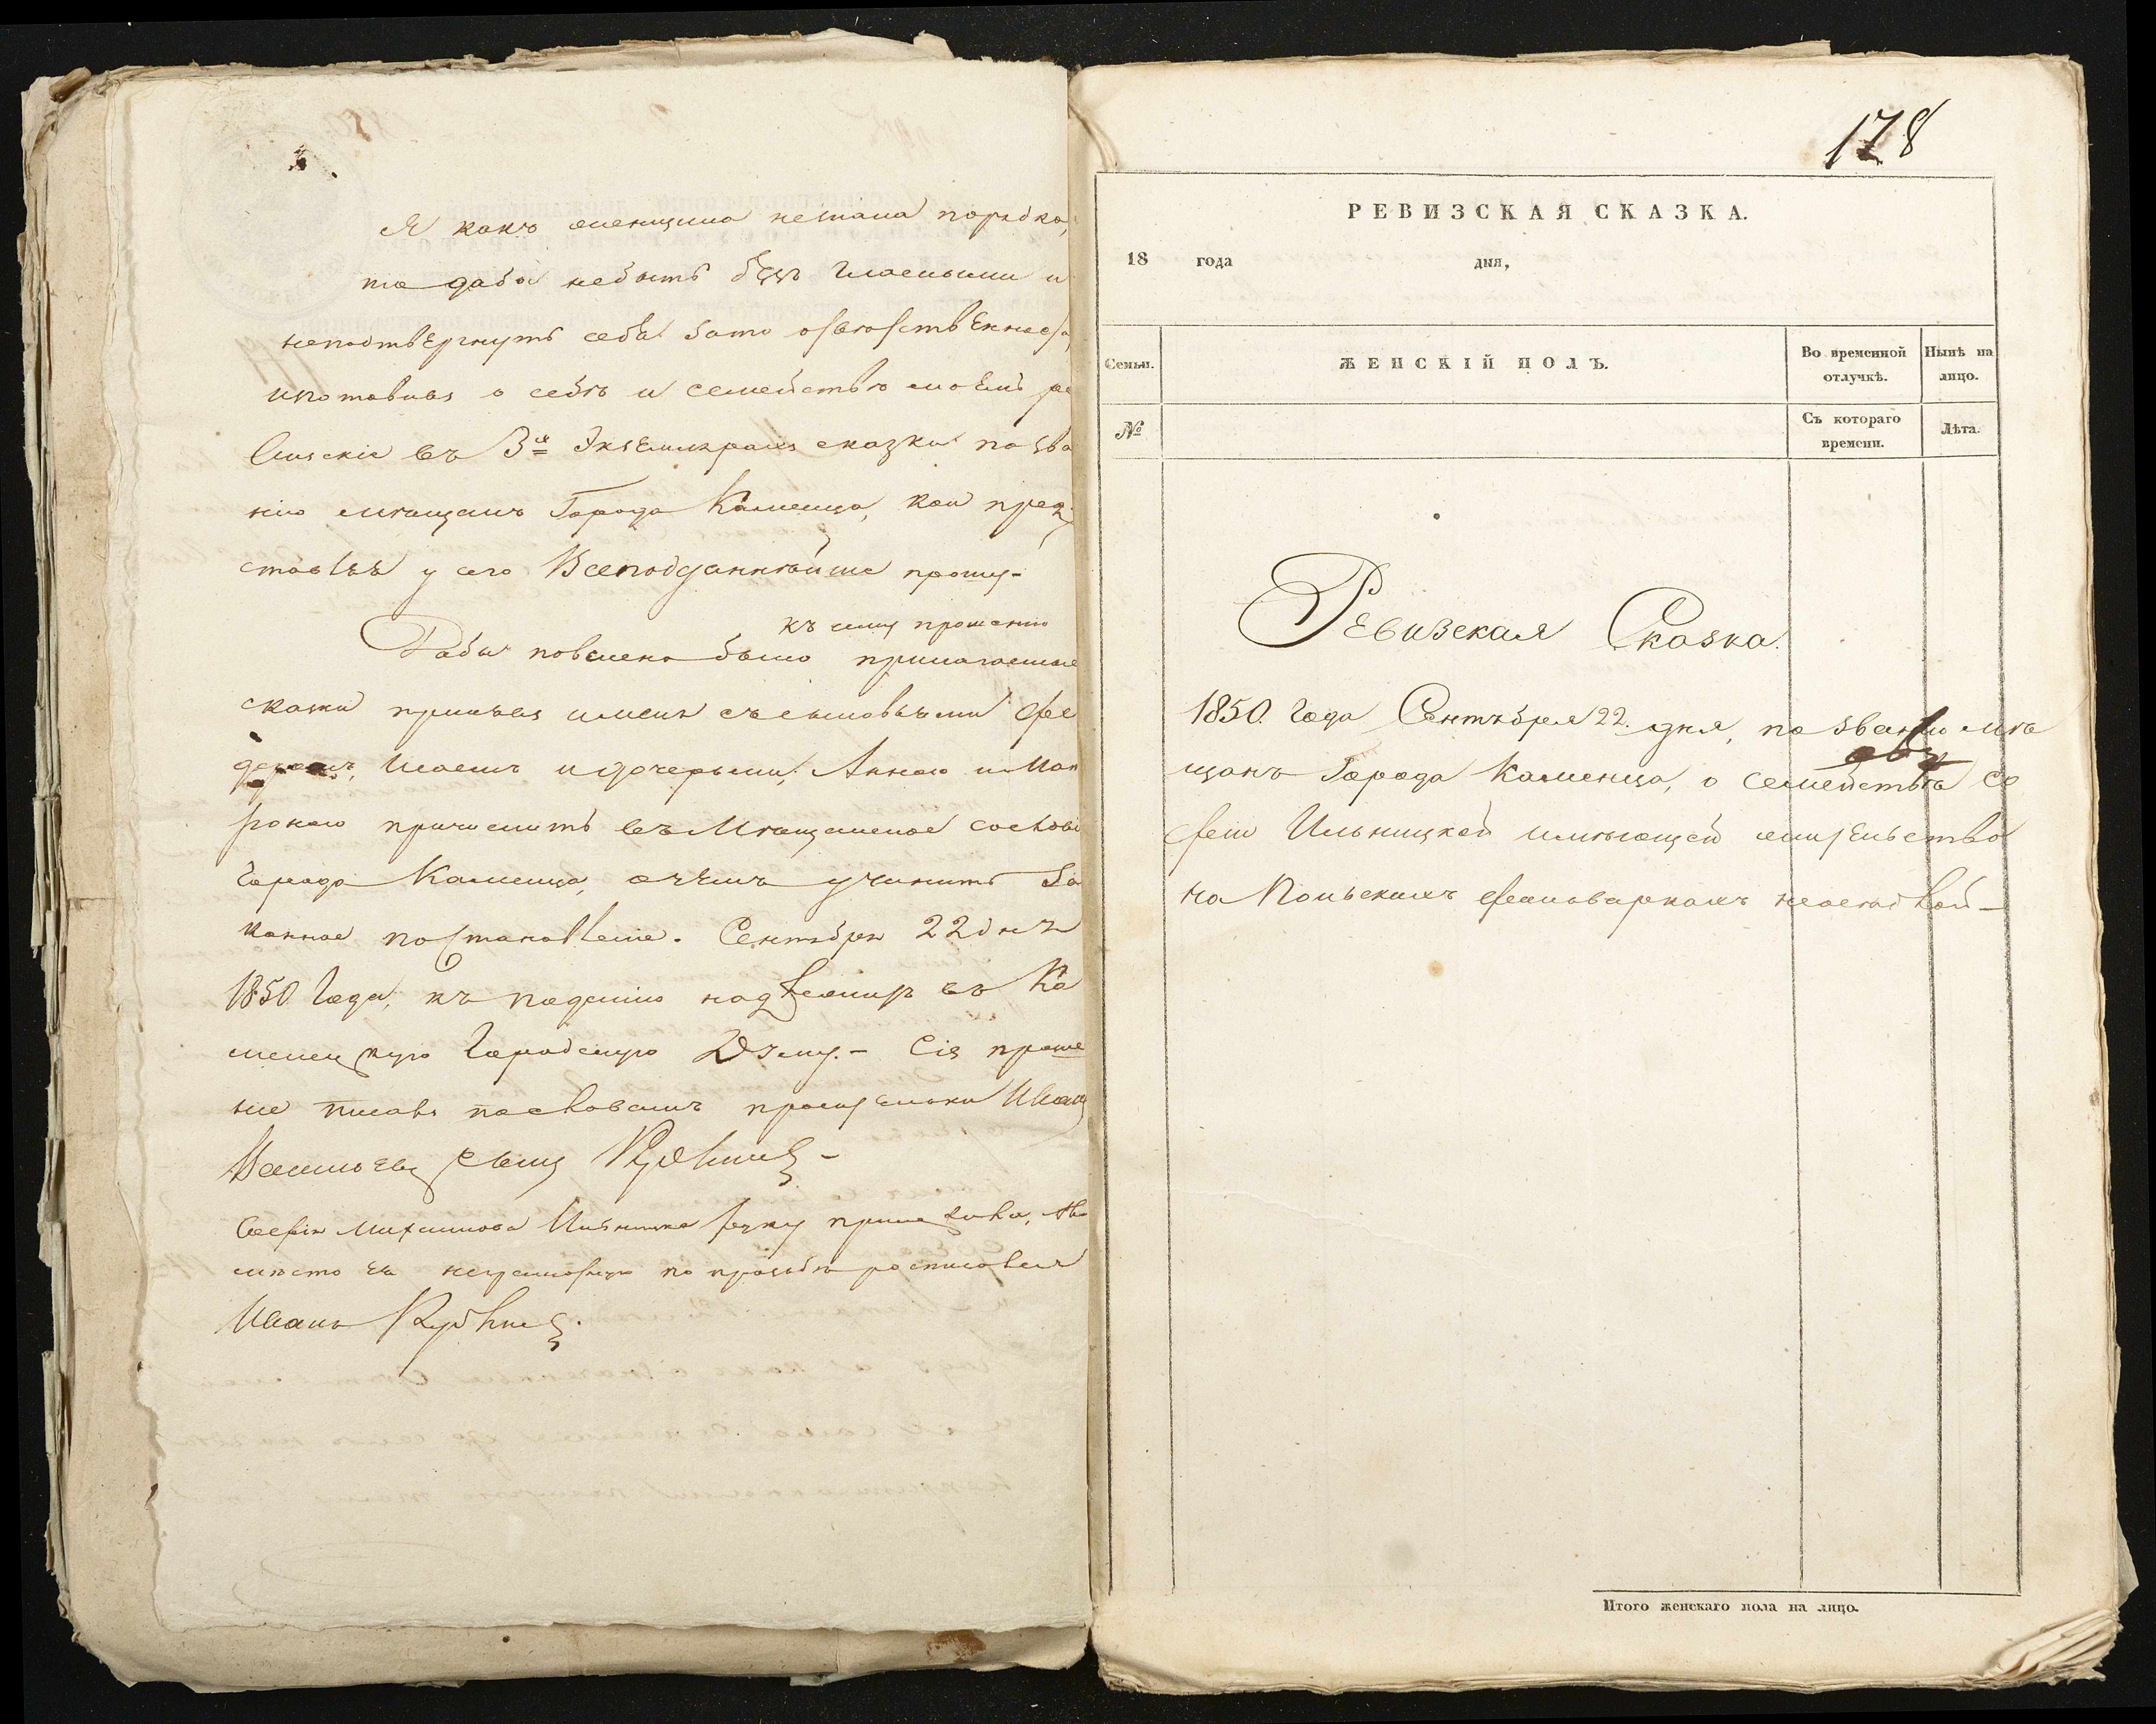 Я какъ женщина незнала порядка,
то дабы небыть безъ гласными и
неподтвергнуть себя зато отвѣтственности,
изготовивъ о себѣ и семействѣ моемъ ре
визскіе въ 3хъ Экземплярахъ сказки по зва
нію мѣщанъ Города Каменца, кои пред
ставляя у сего Всеподданнѣйше прошу-
къ сему прошенію
Дабы повелено было прилагаемые
сказки принявъ меня съ сыновьями Фе
доромъ, Иваномъ и дочерьми, Анною и Мат
роною причислить въ Мѣщанское сословіе
Города Каменца, о чемъ учинить за
конное постановленіе. Сентября 22 дня
1850 Года, къ поданію надлежитъ въ Ка
менецкую Городскую Думу.- Сіе проше
ніе писалъ посвовамъ просительки Иванъ
Васильевъ сынъ
Софія Михайлова Ильницка руку приложила, а в
мѣсто ея неграмотную по прозьбѣ росписался
Иванъ
178
РЕВИЗСКАЯ СКАЗКА.
18 года дня,
Семьи. ЖЕНСКІЙ ПОЛЪ. Во временной отлучкѣ. Нынѣ на лицо.
№ Съ котораго времени. Лѣта.
Ревизская Сказка.
1850. Года Сентября 22. дня, по званію мѣ
щанъ Города Каменца, о семействѣ Со
фіи Ильницкой имѣющей жительство
на Польскихъ фольваркахъ
Итого женскаго пола на лицо.